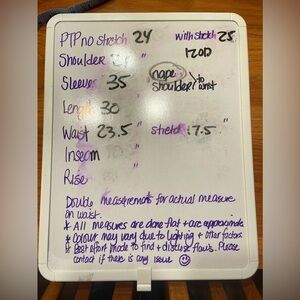 PTP no stretch 24 with stretch 25
Shoulder "
Sleeves 35 nape shoulder } to wrist
Length 30
Waist 23.5" stretch 17.5"
Inseam
Rise
Double measurements for actual measure
on waist.
* All measures are done flat + are approximate
* Colour may vary due to lighting + other factors
* Best effort made to find + disclose flaws. Please
contact if there is any issue ☺